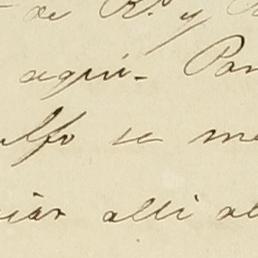 de R.º y
aqui- Par
ulfo se me
ias alli al